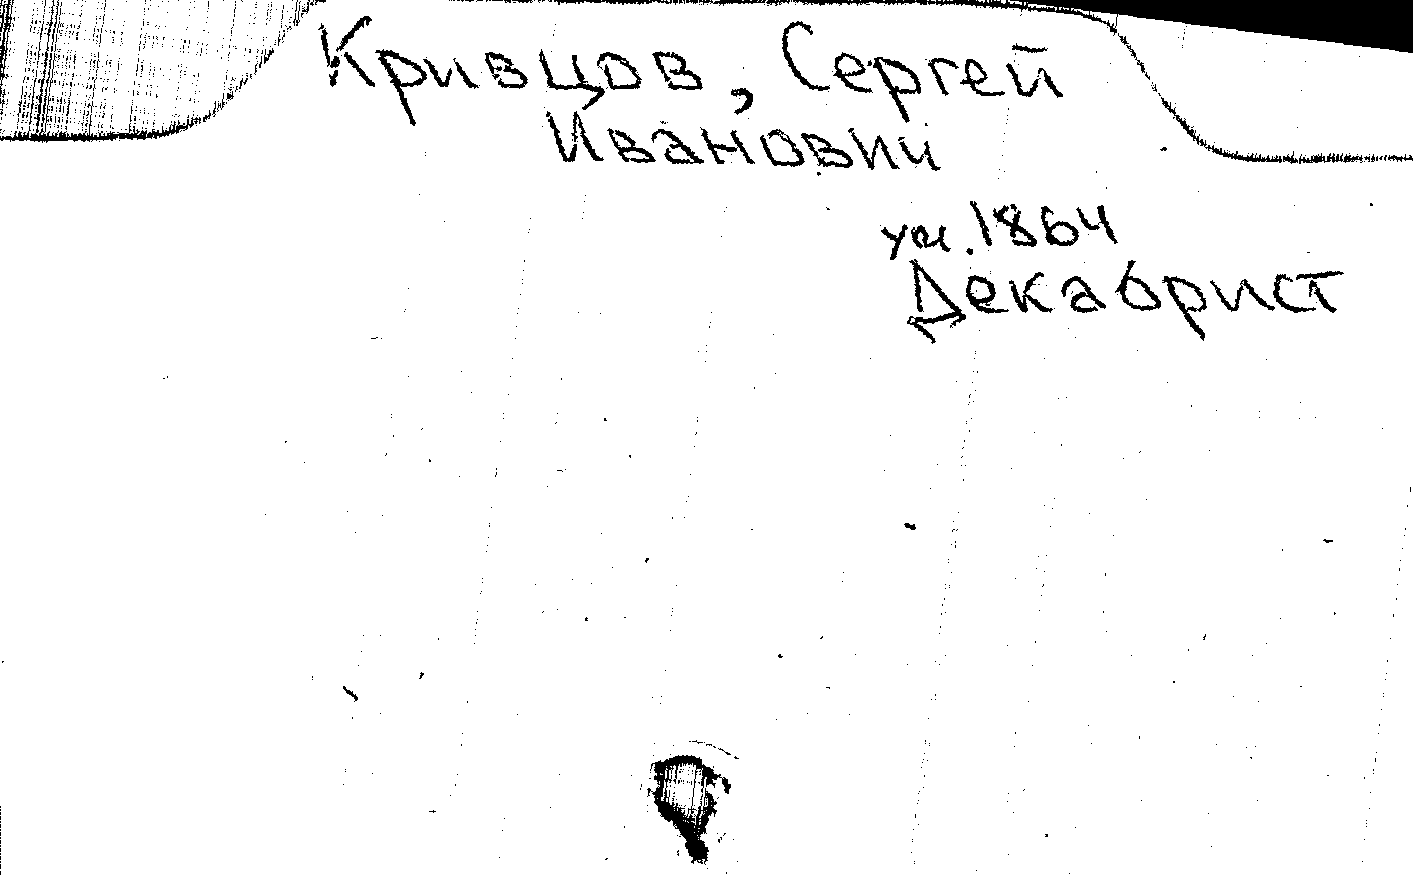 Кривцов, Сергей
Иванович
ум. 1864
Декабрист